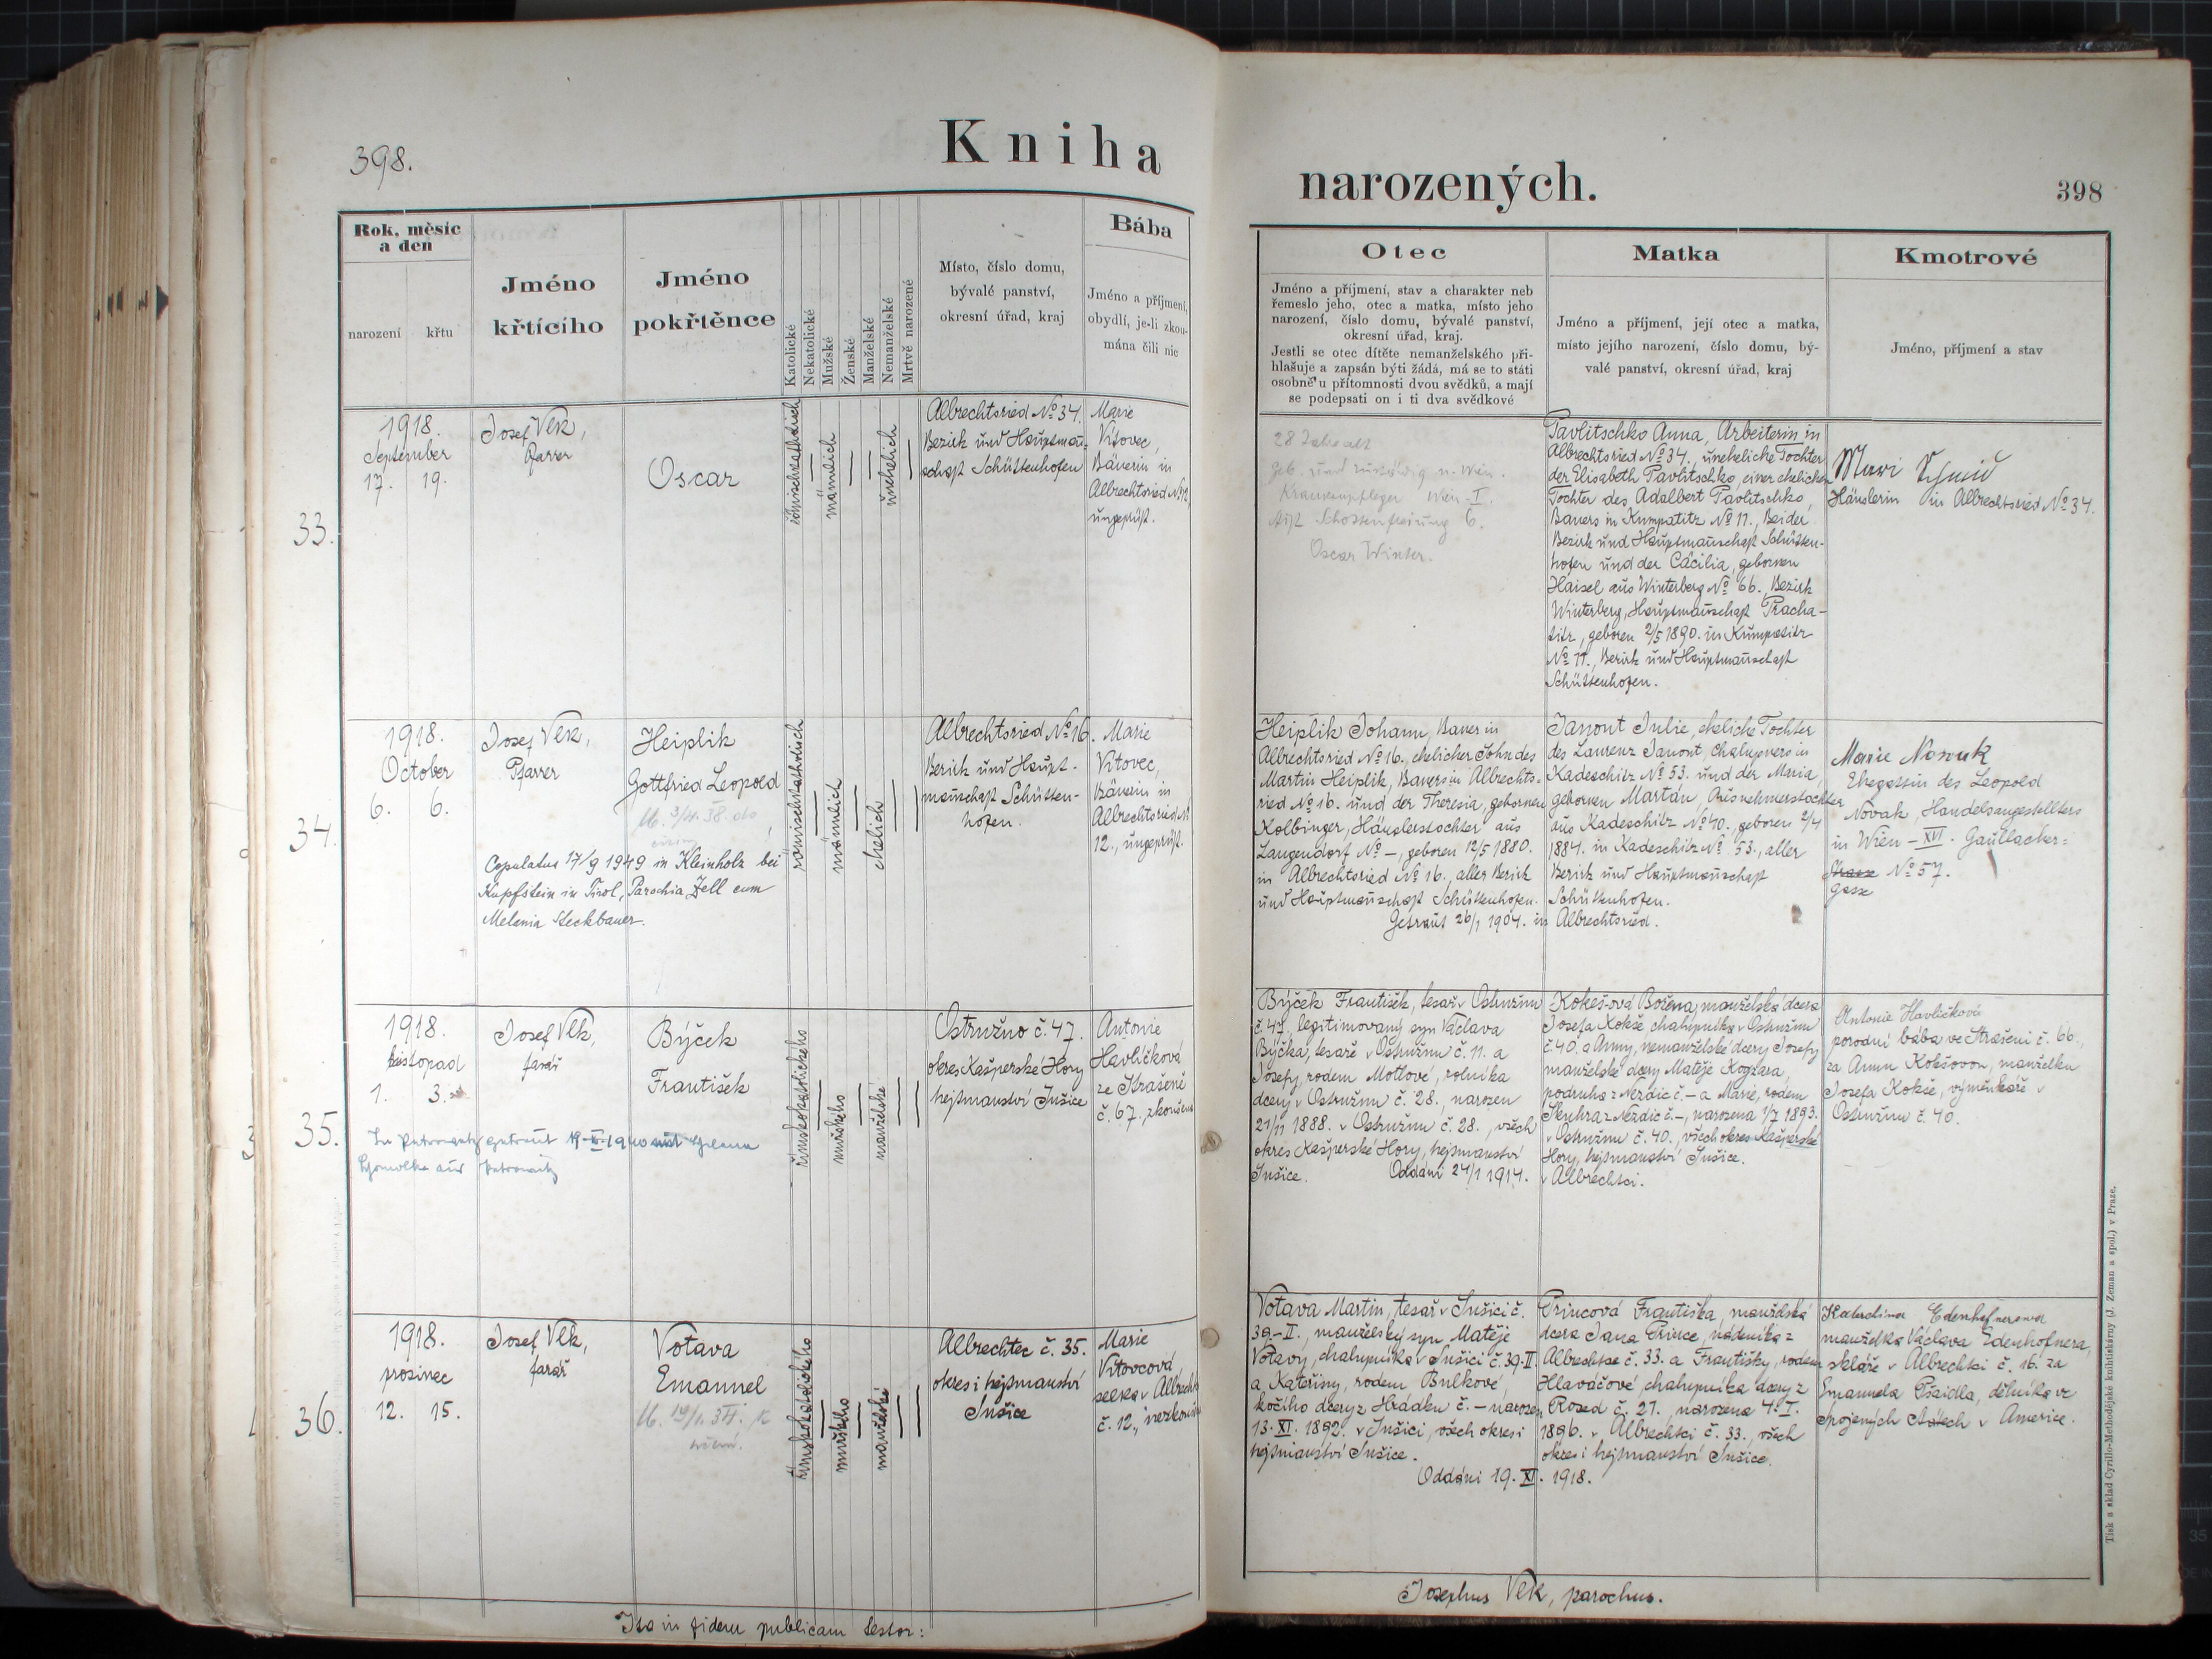 398.
Kniha
Rok, měsíc
a den
narození
křtu
Jméno
křtícího
Jméno
pokřtěnce
Katolické
Nekatolické
Mužské
Ženské
Manželské
Nemanželské
Mrtvě narozené
Místo, číslo domu,
bývalé panství,
okresní úřad, kraj
Bába
Jméno a příjmení,
obydlí, je-li zkou-
mána čili nic
33.
1918.
September
17. 19.
Josef Vlk,
Pfarrer
Oscar
männlich
unehelich
Albrechtsried No 34.
Bezirk und Hauptmann-
schaft Schüttenhofen
Marie
Vítovec,
Bäuerin in
Albrechtsried No 12,
ungeprüft.
34.
1918.
October
6. 6.
Josef Vlk,
Pfarrer
Heiplik
Gottfried Leopold
Copulatus 17/9 1949 in Kleinholz bei
Kupfstein in Tirol, Parochia Zell cum
Melania Steckbauer.
römischkatholisch
männlich
ehelich
Albrechtsried No 16.
Bezirk und Haupt-
mannschaft Schütten-
hofen.
Marie
Vítovec,
Bäuerin in
Albrechtsried No
12., ungeprüft.
35.
1918.
listopad
1. 3.
Josef Vlk,
farář
Býček
František
římskokatolického
mužského
manželské
Ostružno č. 47.
okres Kašperské Hory
hejtmanství Sušice
Antonie
Havlíčková
ze Strašeně
č. 67. zkoušená
36.
1918.
prosinec
12. 15.
Josef Vlk,
farář
Votava
Emanuel
římskokatolického
mužského
manželské
Albrechtec č. 35.
okres i hejtmanství
Sušice
Marie
Vítovcová
selka v Albrechtci
č. 12., nezkoušená
Ita in fidem publicam testor:
narozených.
398
Otec
Jméno a příjmení, stav a charakter neb
řemeslo jeho, otec a matka, místo jeho
narození, číslo domu, bývalé panství,
okresní úřad, kraj.
Jestli se otec dítěte nemanželského při-
hlašuje a zapsán býti žádá, má se to státi
osobně u přítomnosti dvou svědků, a mají
se podepsati on i ti dva svědkové
Matka
Jméno a příjmení, její otec a matka,
místo jejího narození, číslo domu, bý-
valé panství, okresní úřad, kraj
Kmotrové
Jméno, příjmení a stav
28 Jahre alt
geb. und zuständig n. Wien.
Krankenpfleger Wien I.
Oscar Winter.
Pavlitschko Anna, Arbeiterin in
Albrechtsried No 34, uneheliche Tochter
der Elisabeth Pavlitschko, einer ehelichen
Tochter des Adalbert Pavlitschko,
Bauers in Kumpatitz No 11., Beider
Bezirk und Hauptmannschaft Schütten-
hofen und der Cäcilia, gebornen
Haisel aus Winterberg No 66. Bezirk
Winterberg, Hauptmannschaft Pracha-
titz, geboren 2/5 1890. in Kumpatitz
No 11., Bezirk und Hauptmannschaft
Schüttenhofen.
Mari Schmid
Häuslerin in Albrechtsried No 34.
Heiplik Johann, Bauer in
Albrechtsried No 16., ehelicher Sohn des
Martin Heiplik, Bauers in Albrechts-
ried No 16. und der Theresia, gebornen
Kolbinger, Häuslerstochter aus
Langendorf No –, geboren 12/5 1880.
in Albrechtsried No 16., aller Bezirk
und Hauptmannschaft Schüttenhofen.
Getraut 26/1 1904. in Albrechtsried.
Janont Julie, eheliche Tochter
des Laurenz Janont, Chalupners in
Kadeschitz No 53. und der Maria,
gebornen Martan, Ausnehmerstochter
aus Kadeschitz No 40., geboren 2/4
1884. in Kadeschitz No 53., aller
Bezirk und Hauptmannschaft
Schüttenhofen.
Marie Nowak
Ehegattin des Leopold
Novak, Handelsangestellters
in Wien – XVI. Gaullacher=
Strasse No 57.
gasse
Býček František, tesař v Ostružnu
č. 47, legitimovaný syn Václava
Býčka, tesaře v Ostružnu č. 11. a
Josefy, rodem Motlové, rolníka
dcery v Ostružnu č. 28., narozen
21/11 1888. v Ostružnu č. 28., všech
okres Kašperské Hory, hejtmanství
Sušice. Oddáni 24/1 1914. v Albrechtci.
Kokeš-ová Božena, manželská dcera
Josefa Kokše chalupníka v Ostružnu
č. 40. a Anny, nemanželské dcery Josefy
manželské dcery Matěje
podruha z Nezdic č. – a Marie, rodem
Skuhra z Nezdic č. –, narozena 1/7 1893.
v Ostružnu č. 40., všech okres Kašperské
Hory, hejtmanství Sušice.
Antonie Havlíčková
porodní bába ve Strašeni č. 66.,
za Annu Kokšovou, manželku
Josefa Kokše, výměnkáře v
Ostružnu č. 40.
Votava Martin, tesař v Sušici č.
39.-II., manželský syn Matěje
Votavy, chalupníka v Sušici č. 39-II.
a Kateřiny, rodem Bulkové,
kočího dcery z Hrádku č. – narozen
13. XI. 1892. v Sušici, všech okres i
hejtmanství Sušice.
Oddáni 19. XI. 1918.
Princová Františka, manželská
dcera Jana Prince, nádeníka z
Albrechtce č. 33. a Františky, rodem
Hlaváčové, chalupníka dcery z
Rosed č. 21., narozena 4. I.
1896. v Albrechtci č. 33., všech
okres i hejtmanství Sušice.
Kateřina Edenhofnerová
manželka Václava Edenhofnera,
skláře v Albrechtci č. 16. za
Emanuela Pšaidla, dělníka ve
Spojených Státech v Americe.
Josephus Vlk, parochus.
Tisk a sklad Cyrillo-Methodějské knihtiskárny (J. Zeman a spol.) v Praze.